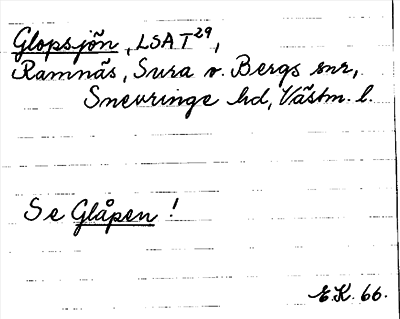 Glopsjön, LSAT²⁹,
Ramnäs, Sura o. Bergs snr,
Snevringe hd, Västm. l.
Se Glåpen!
E.K. 66.